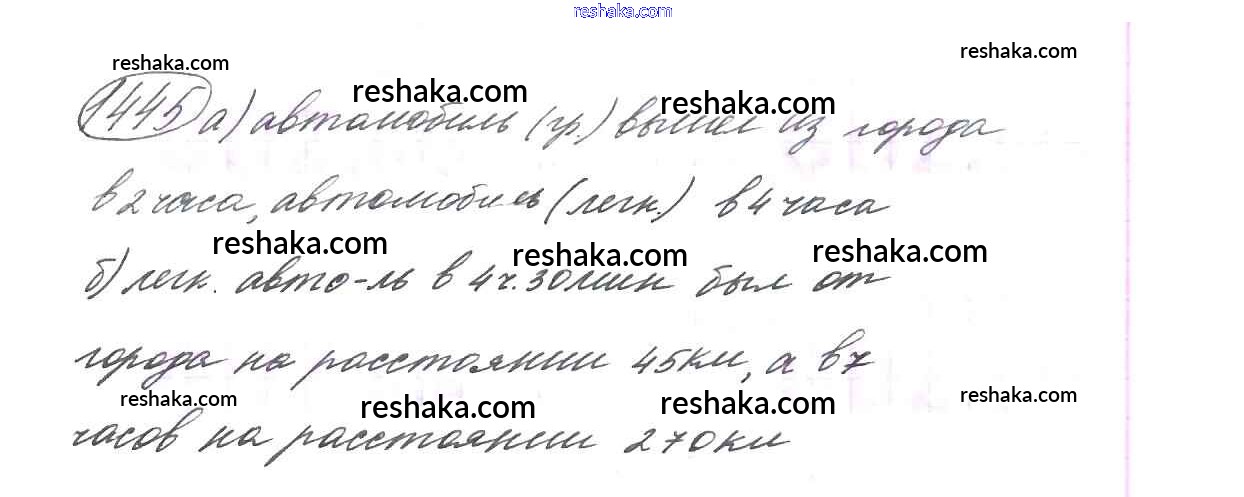 reshaka.com
reshaka.com reshaka.com
reshaka.com reshaka.com
1445 а) автомобиль (гр.) вышел из города
в 2 часа, автомобиль (легк.) в 4 часа
reshaka.com reshaka.com reshaka.com
б) легк. авто-ль в 4 ч. 30 мин был от
города на расстоянии 45 км, а в 7
reshaka.com reshaka.com reshaka.com reshaka.com
часов на расстоянии 270 км